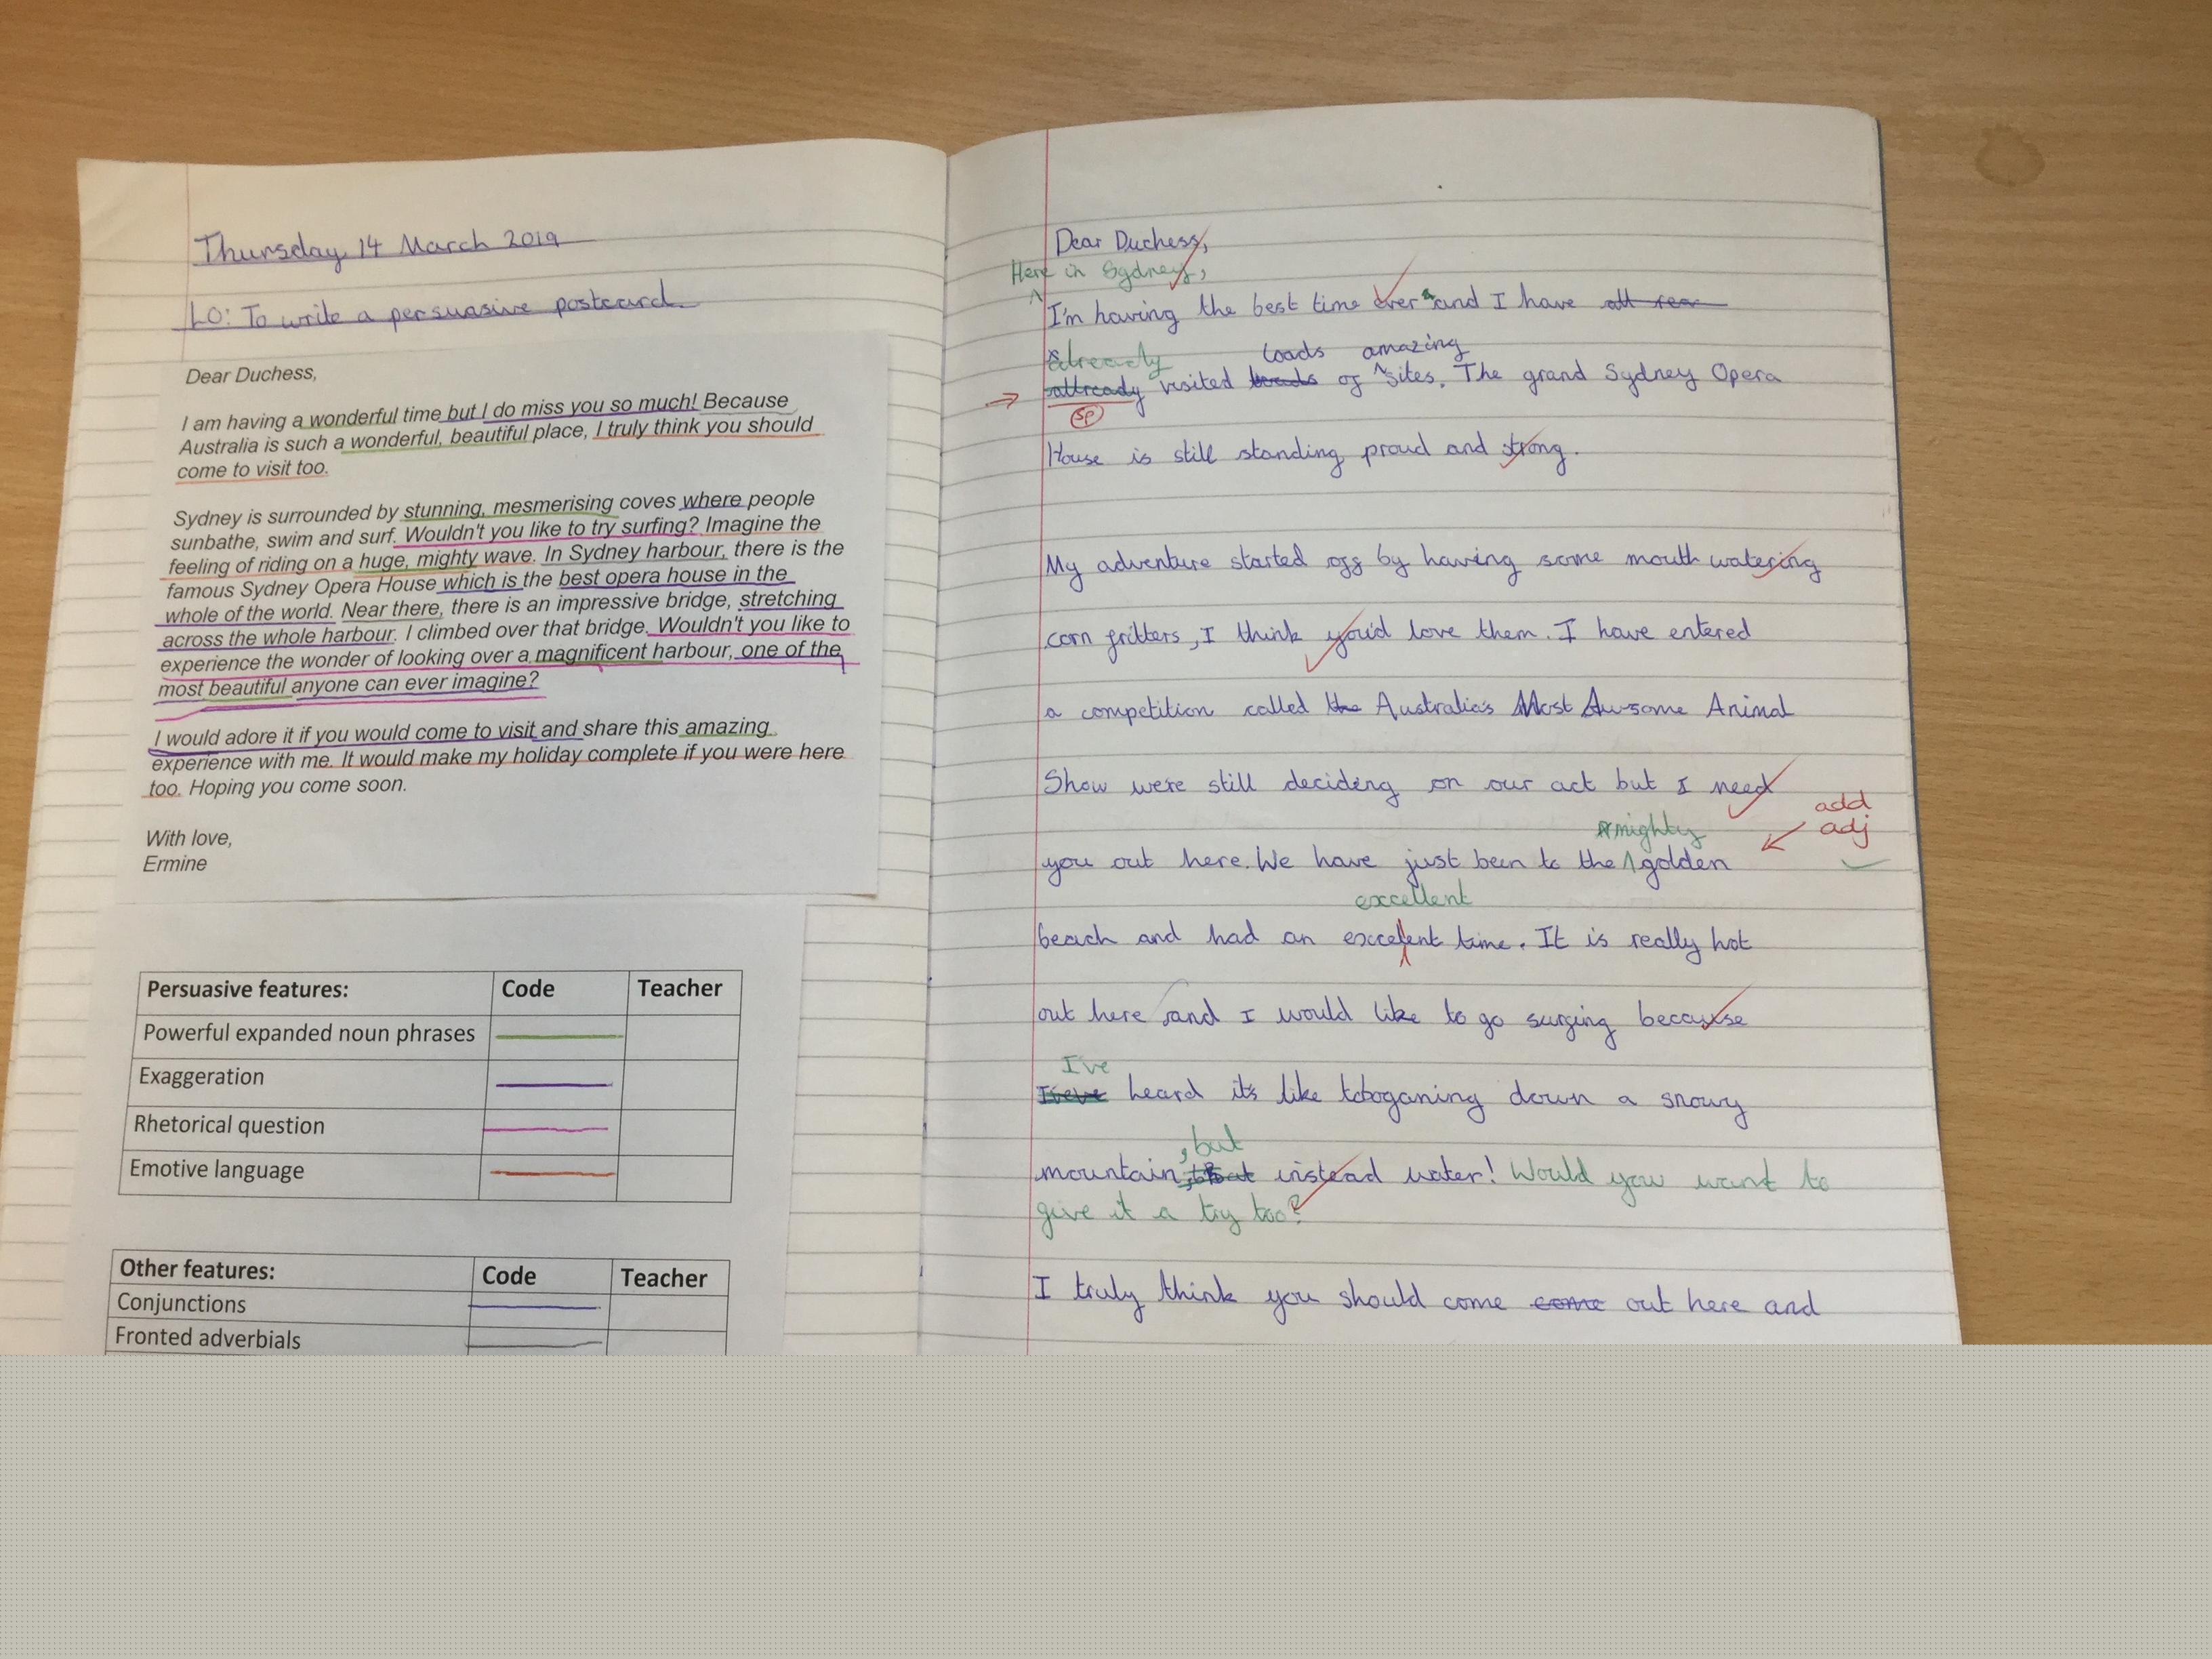 Thursday, 14 March 2019
LO: To write a persuasive postcard.
Dear Duchess,
I am having a wonderful time but I do miss you so much! Because
Australia is such a wonderful, beautiful place, I truly think you should
come to visit too.
Sydney is surrounded by stunning, mesmerising coves where people
sunbathe, swim and surf. Wouldn't you like to try surfing? Imagine the
feeling of riding on a huge, mighty wave. In Sydney harbour, there is the
famous Sydney Opera House which is the best opera house in the
whole of the world. Near there, there is an impressive bridge, stretching
across the whole harbour. I climbed over that bridge. Wouldn't you like to
experience the wonder of looking over a magnificent harbour, one of the
most beautiful anyone can ever imagine?
I would adore it if you would come to visit and share this amazing
experience with me. It would make my holiday complete if you were here
too. Hoping you come soon.
With love,
Ermine
Persuasive features: Code Teacher
Powerful expanded noun phrases
Exaggeration
Rhetorical question
Emotive language
Other features: Code Teacher
Conjunctions
Fronted adverbials
Dear Duchess,
Here in Sydney,
I'm having the best time ever and I have all rea
already loads amazing
allready visited loads of sites. The grand Sydney Opera
sp
House is still standing proud and strong.
My adventure started off by having some mouth watering
corn fritters, I think you'd love them. I have entered
a competition called the Australia's Most Awsome Animal
Show were still deciding on our act but I need
mighty
add
adj
you out here. We have just been to the golden
excellent
beach and had an excelent time. It is really hot
out here and I would like to go surfing because
I've
heard it's like toboganing down a snowy
, but
mountain instead water! Would you want to
give it a try too?
I truly think you should come come out here and